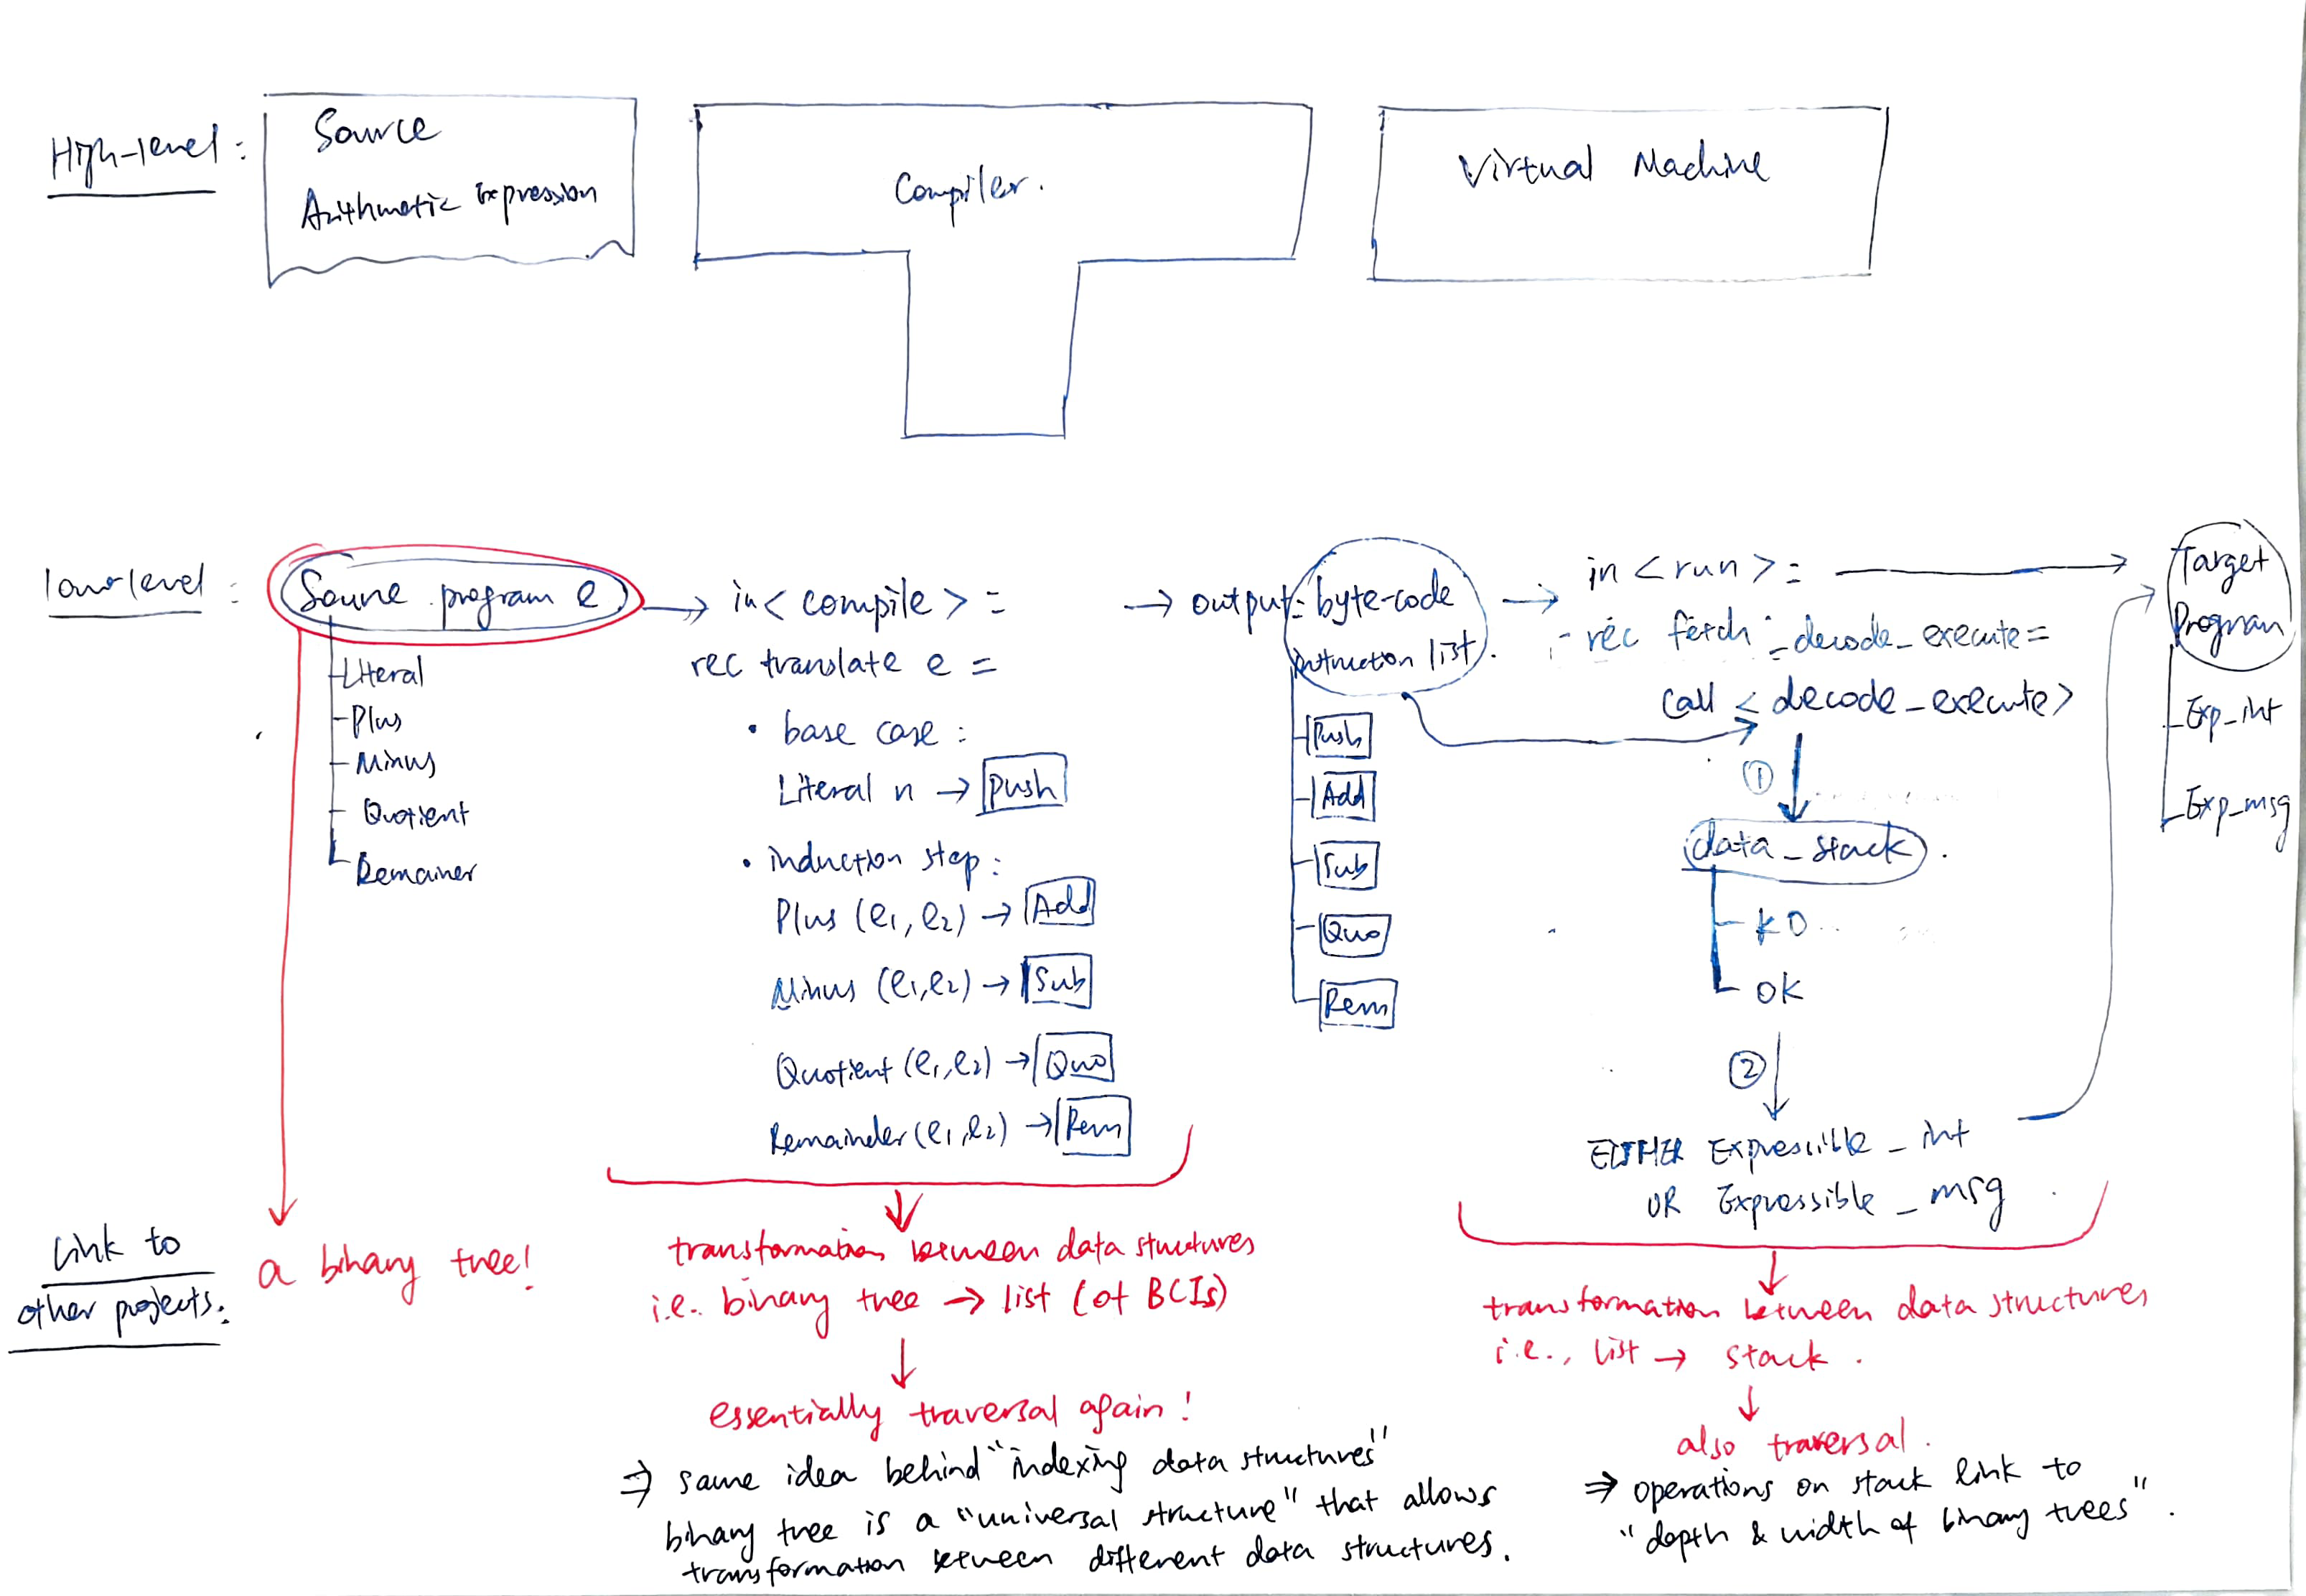 High-level :
Source
Arithmetic Expression
Compiler.
Virtual Machine
low-level :
Source program e
Literal
Plus
Minus
Quotient
Remainer
in < compile > =
rec translate e =
• base case :
Literal n → Push
• induction step :
Plus (e1, e2) → Add
Minus (e1, e2) → Sub
Quotient (e1, e2) → Quo
Remainder (e1, e2) → Rem
→ output: byte-code
instruction list.
Push
Add
Sub
Quo
Rem
→ in < run > =
- rec fetch_decode_execute =
call < decode_execute >
①
data_stack.
KO
OK
②
EITHER Expressible_int
OR Expressible_msg
Target
Program
Exp_int
Exp_msg
Link to
other projects.
a binary tree!
transformation between data structures
i.e. binary tree → list (of BCIs)
essentially traversal again!
⇒ same idea behind "indexing data structures"
binary tree is a "universal structure" that allows
transformation between different data structures.
transformation between data structures
i.e., list → stack.
also traversal.
⇒ operations on stack link to
"depth & width of binary trees".